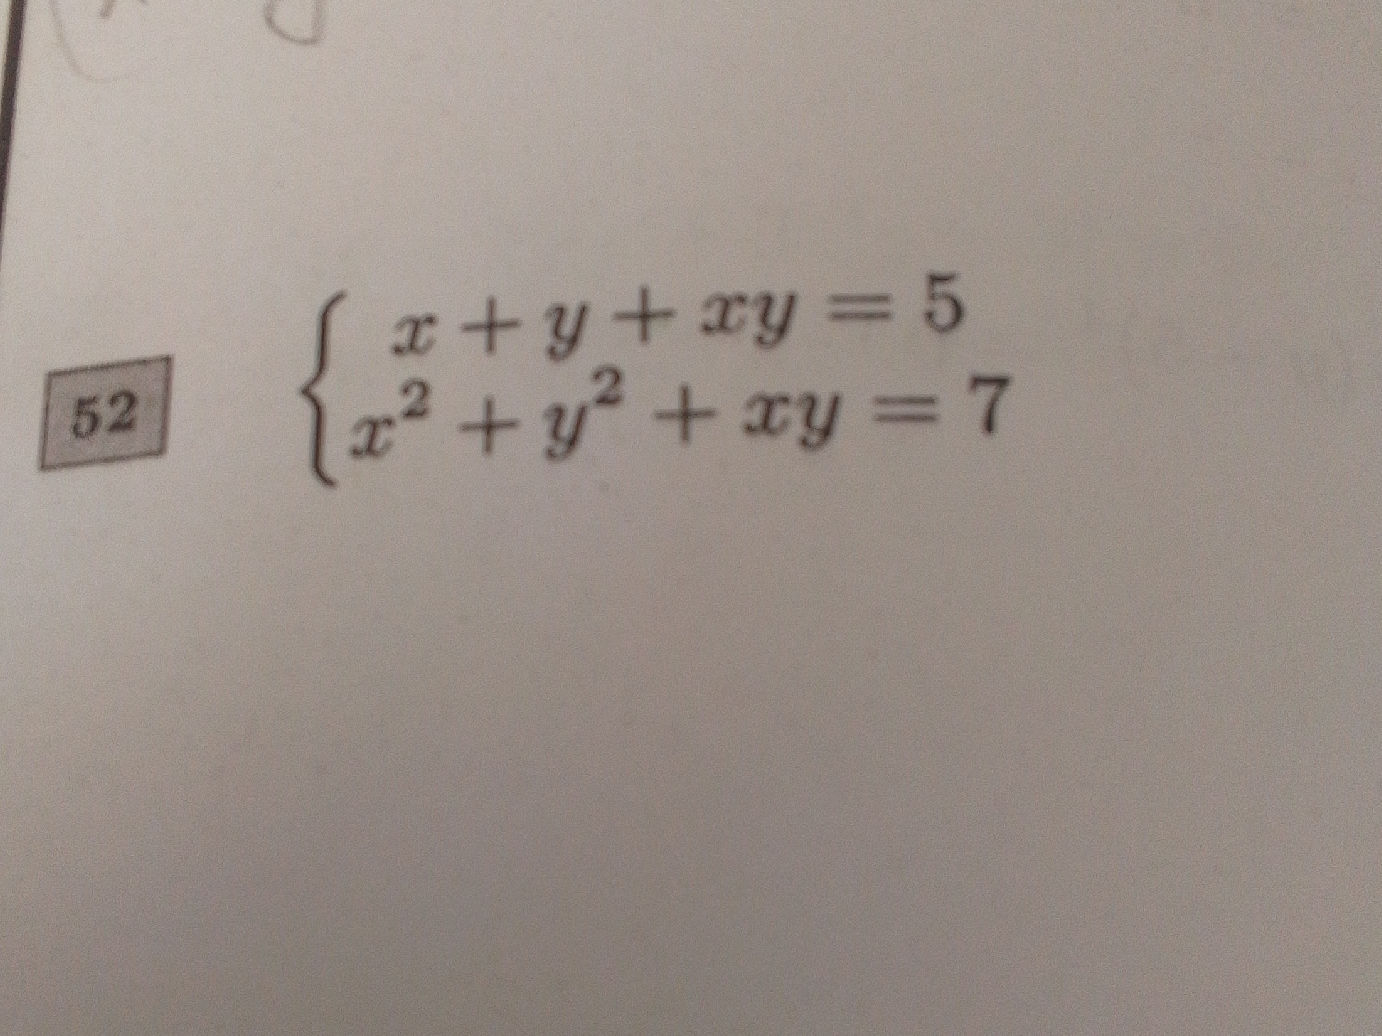 52
x + y + xy = 5
x² + y² + xy = 7